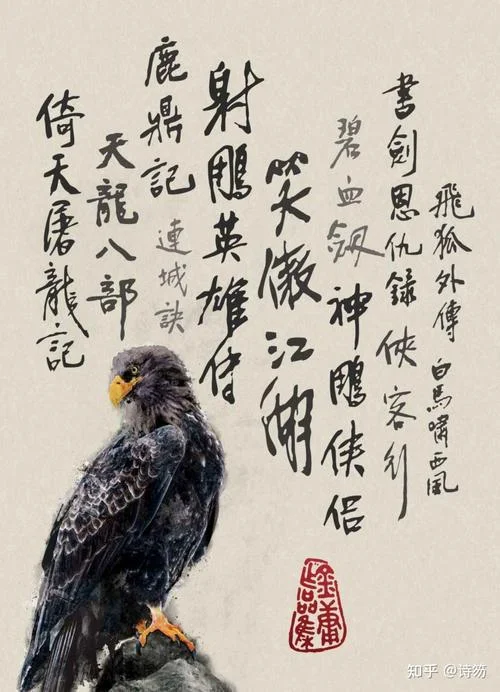 飛狐外傳
白馬嘯西風
書劍恩仇錄
俠客行
碧血劔
神鵰俠侶
笑傲江湖
射鵰英雄傳
鹿鼎記
連城訣
天龍八部
倚天屠龍記
金庸作品集
知乎 @诗笏